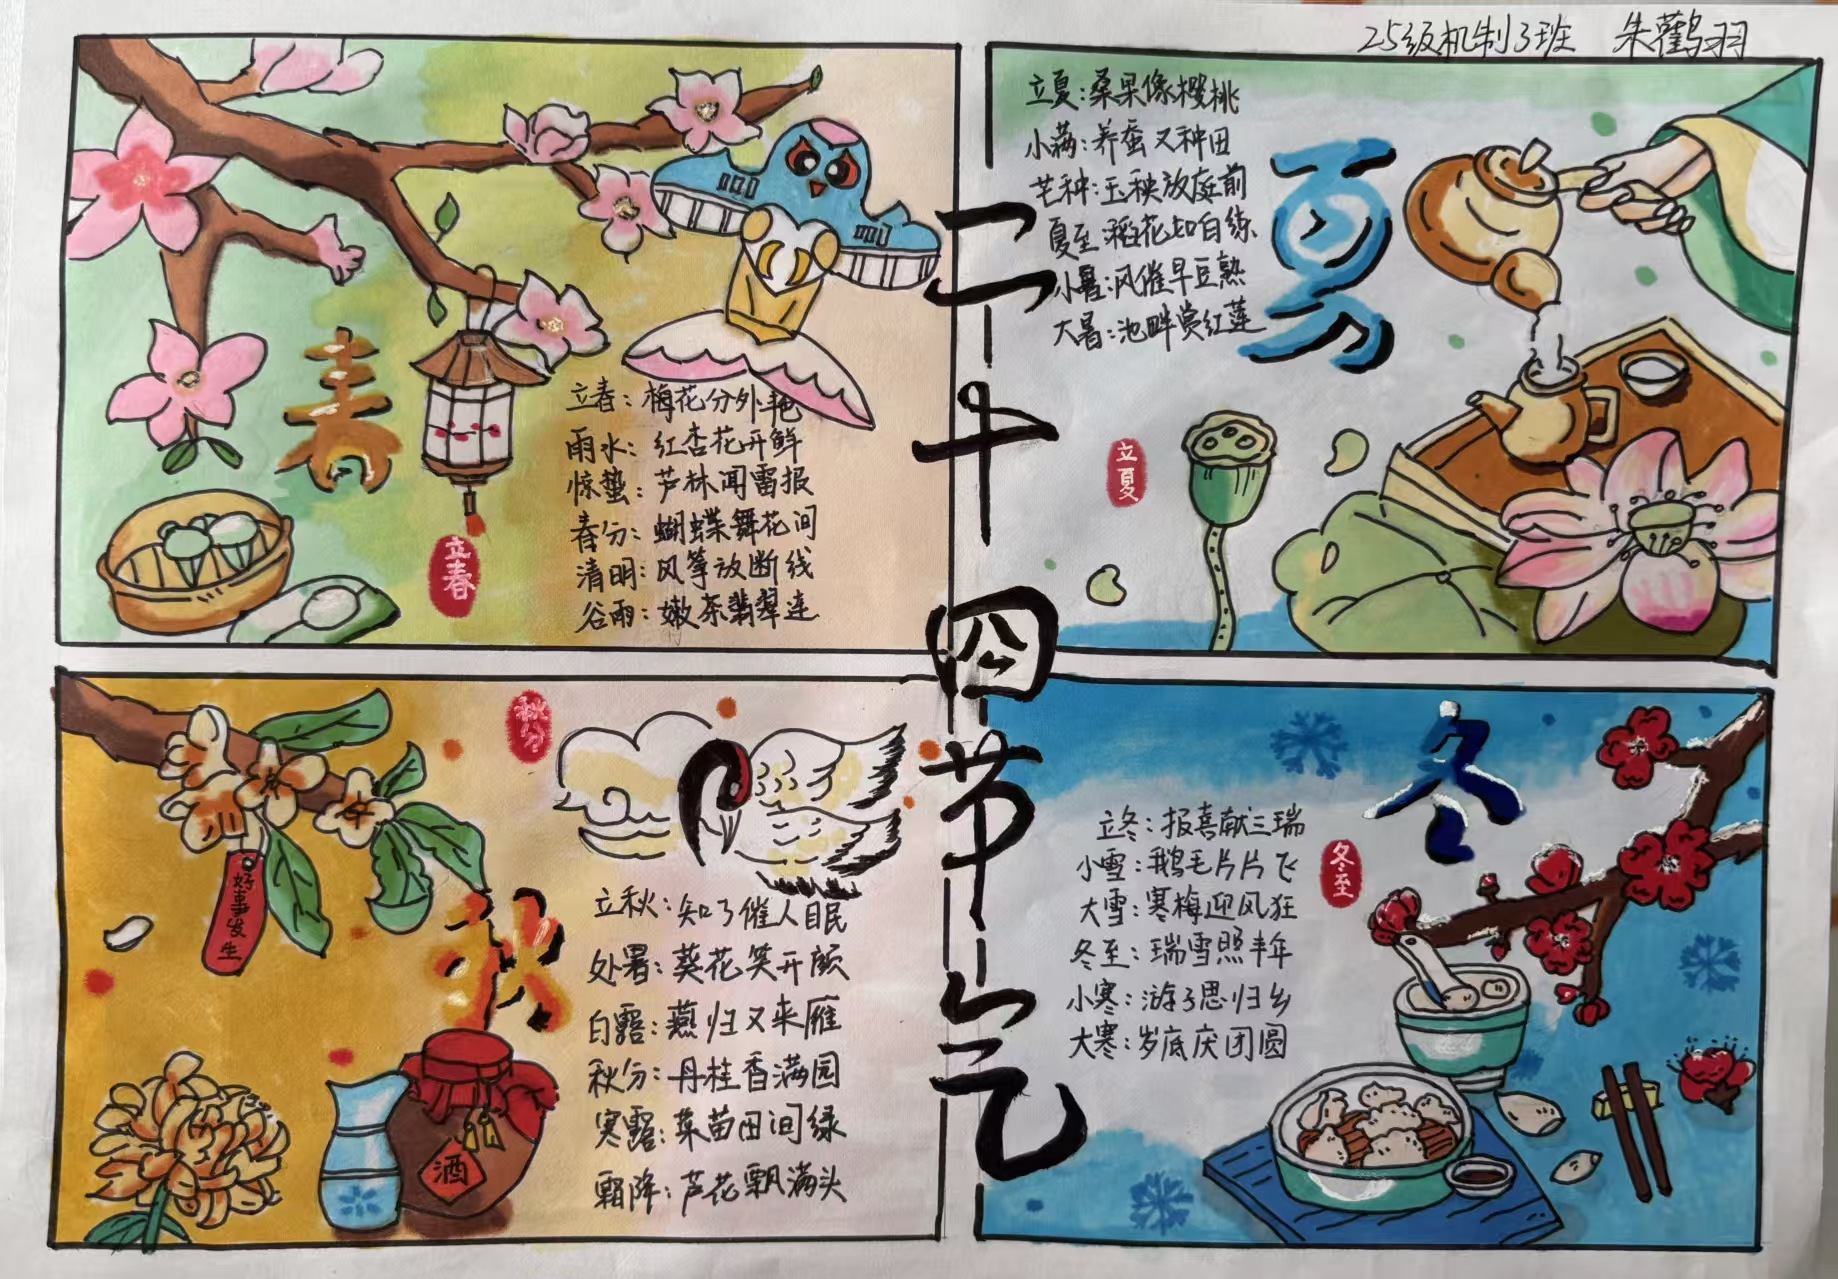 25级机制3班 朱鹳羽
二十四节气
春
立春
立春：梅花分外艳
雨水：红杏花开鲜
惊蛰：芦林闻雷报
春分：蝴蝶舞花间
清明：风筝放断线
谷雨：嫩茶翡翠连
立夏：桑果像樱桃
小满：养蚕又种田
芒种：玉秧放庭前
夏至：稻花如白练
小暑：风催早豆熟
大暑：池畔赏红莲
夏
立夏
秋分
好事发生
秋
酒
立秋：知了催人眠
处暑：葵花笑开颜
白露：燕归又来雁
秋分：丹桂香满园
寒露：菜苗田间绿
霜降：芦花飘满头
冬
冬至
立冬：报喜献三瑞
小雪：鹅毛片片飞
大雪：寒梅迎风狂
冬至：瑞雪照丰年
小寒：游子思归乡
大寒：岁底庆团圆